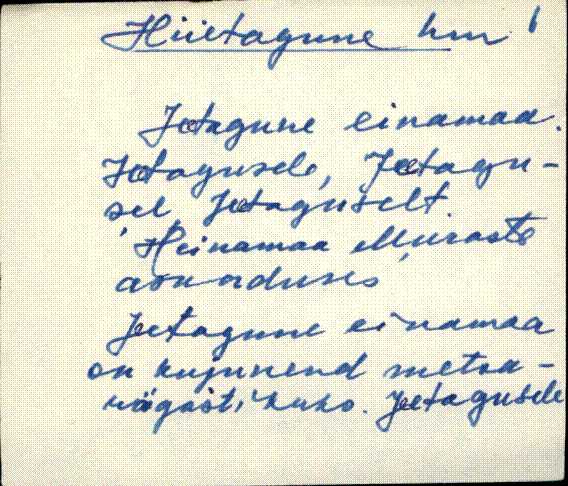 Hiietagune hm 1
Jeetagune einamaa.
Jeetagusele, Jeetagu-
sel, Jeetaguselt
Heinamaa Muraste
asunduses
Jeetagune einamaa
on kujunend metsa-
rägastikuks. Jeetagusele